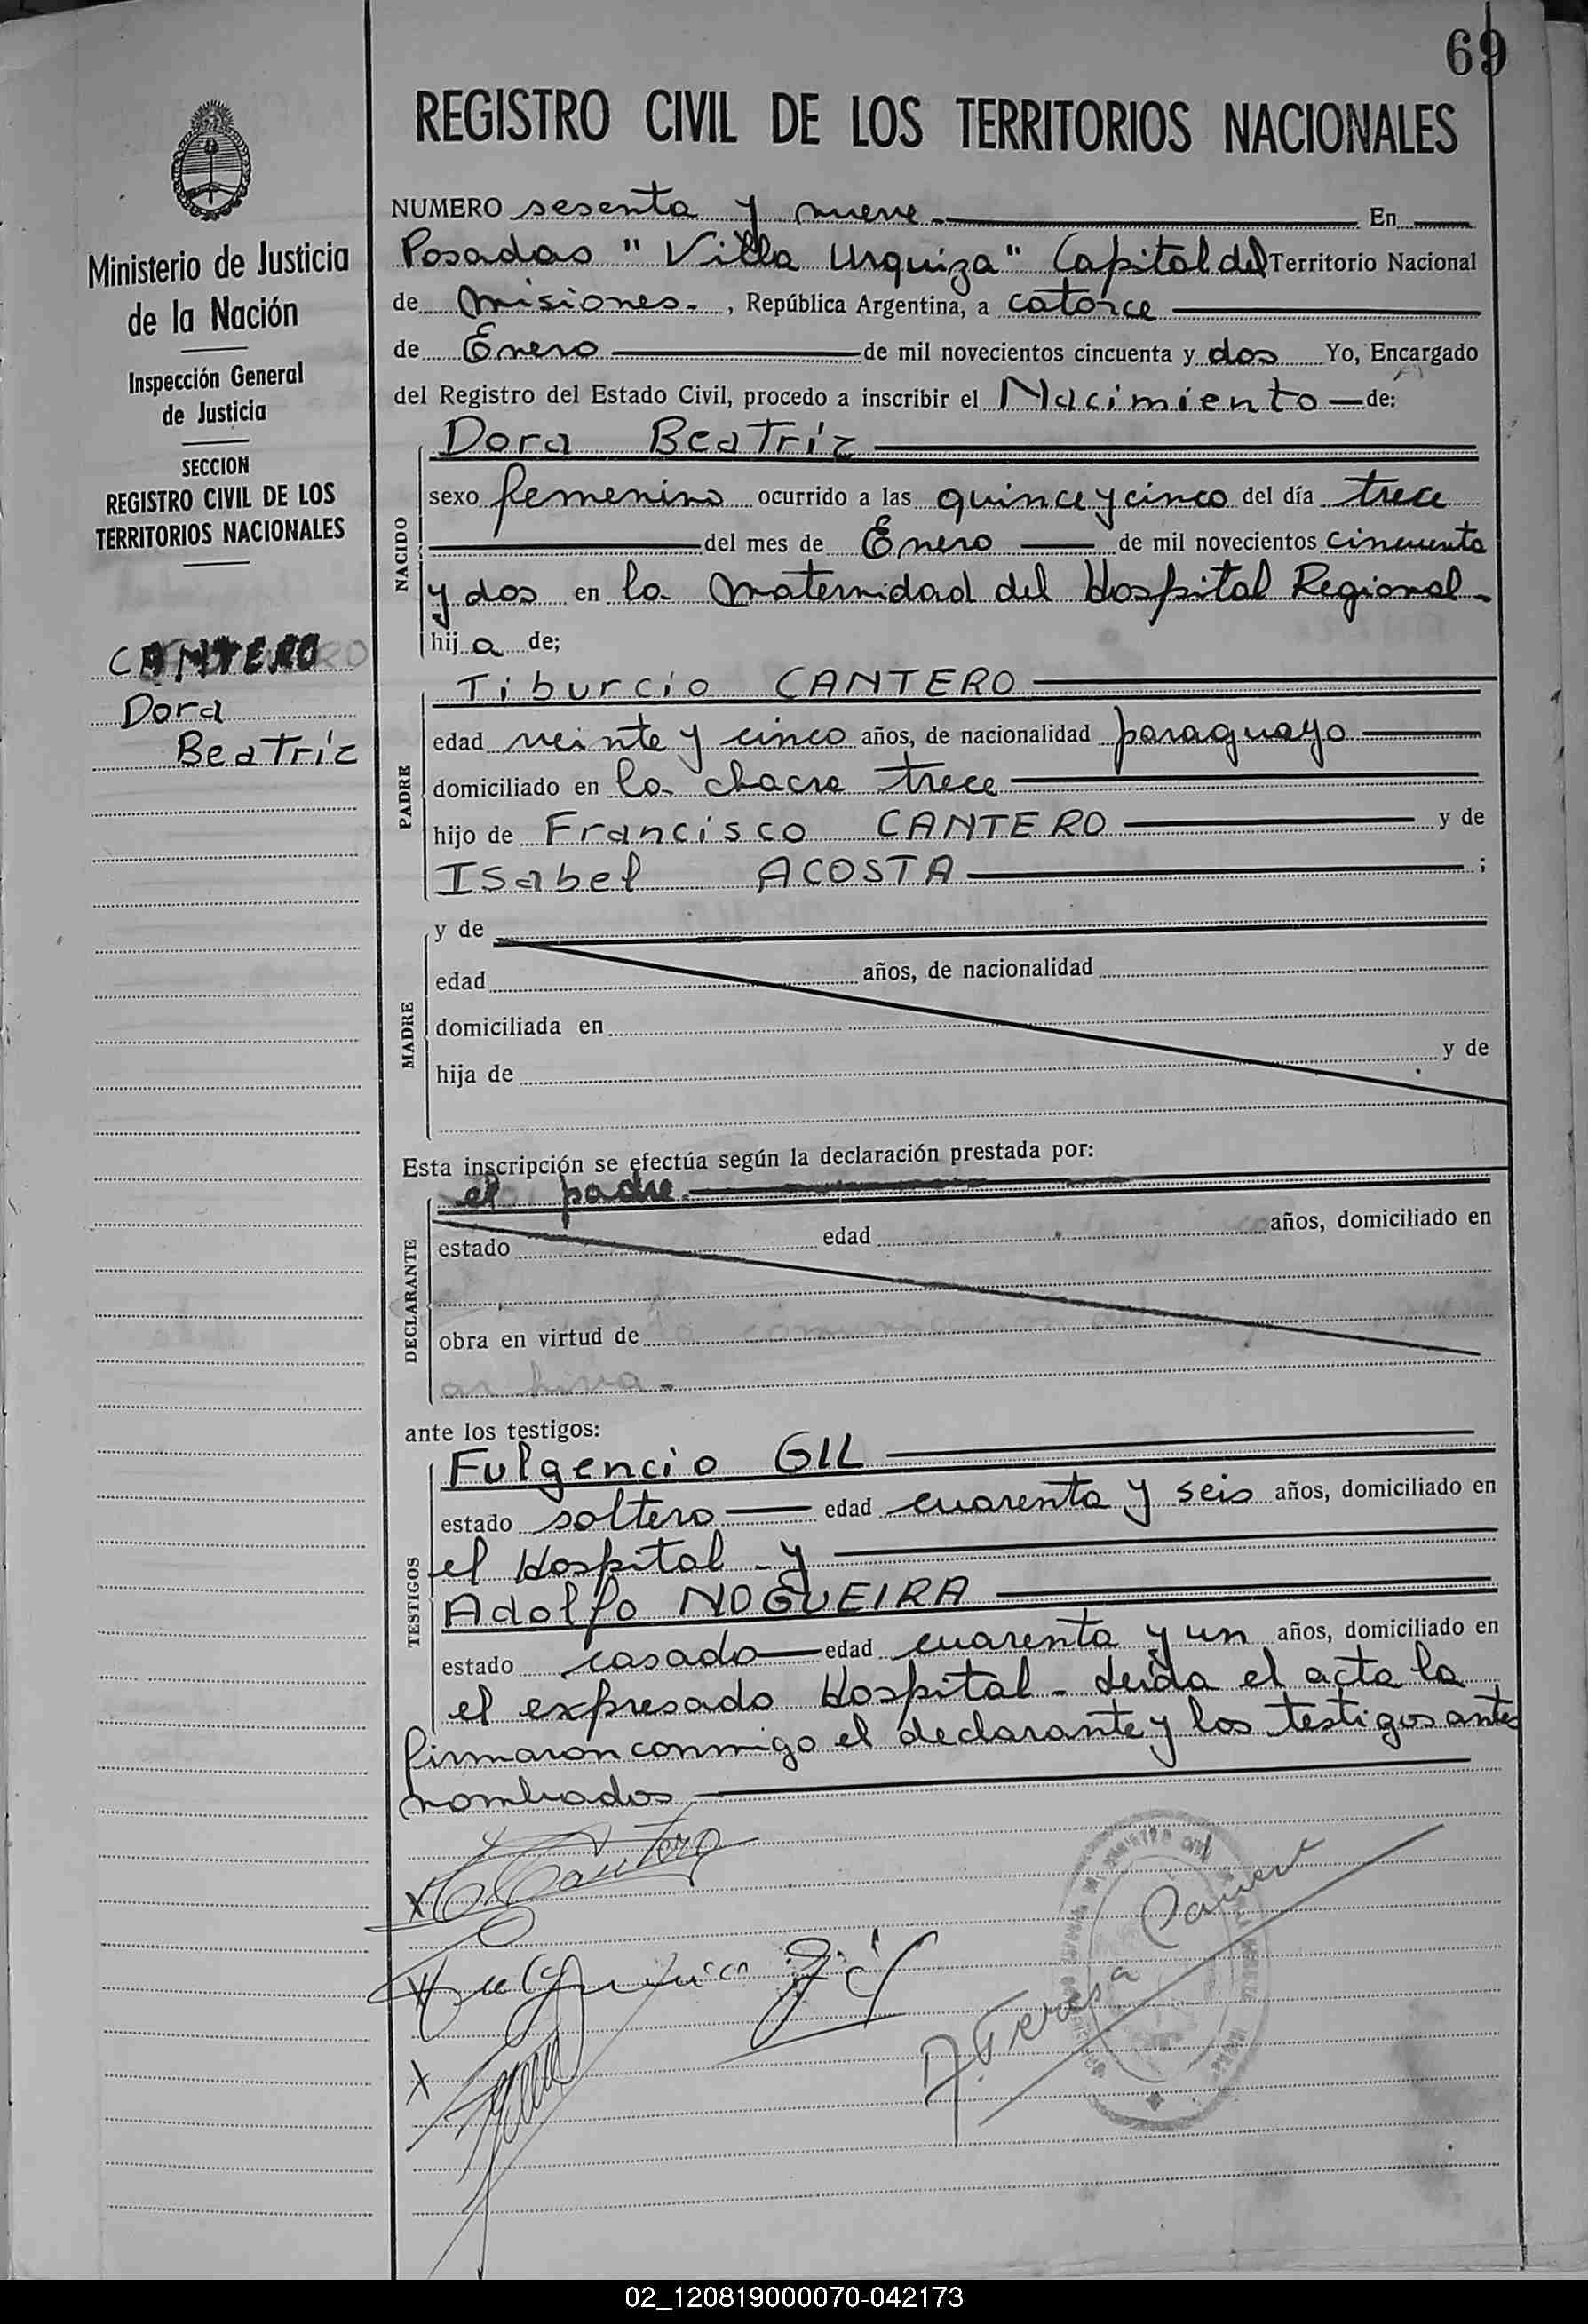 69
REGISTRO CIVIL DE LOS TERRITORIOS NACIONALES
Ministerio de Justicia
de la Nación
Inspección General
de Justicia
SECCION
REGISTRO CIVIL DE LOS
TERRITORIOS NACIONALES
CANTERO
Dora
Beatríz
NUMERO sesenta y nueve.- En
Posadas "Villa Urquiza" Capital del Territorio Nacional
de Misiones.-, República Argentina, a catorce
de Enero de mil novecientos cincuenta y dos Yo, Encargado
del Registro del Estado Civil, procedo a inscribir el Nacimiento de:
NACIDO
Dora Beatríz
sexo femenino ocurrido a las quince y cinco del día trece
del mes de Enero de mil novecientos cincuenta
y dos en la maternidad del Hospital Regional.-
hij a de;
PADRE
Tiburcio CANTERO
edad veinte y cinco años, de nacionalidad paraguayo
domiciliado en la chacra trece
hijo de Francisco CANTERO y de
Isabel ACOSTA ;
MADRE
y de
edad años, de nacionalidad
domiciliada en
hija de y de
Esta inscripción se efectúa según la declaración prestada por:
DECLARANTE
el padre.-
estado edad años, domiciliado en
obra en virtud de
ante los testigos:
TESTIGOS
Fulgencio GIL
estado soltero edad cuarenta y seis años, domiciliado en
el Hospital - y
Adolfo NOGUEIRA
estado casado edad cuarenta y un años, domiciliado en
el expresado Hospital - Leída el acta la
firmaron conmigo el declarante y los testigos antes
nombrados
T. Cantero
Fulgencio Gil
A. Teresa
02_120819000070-042173